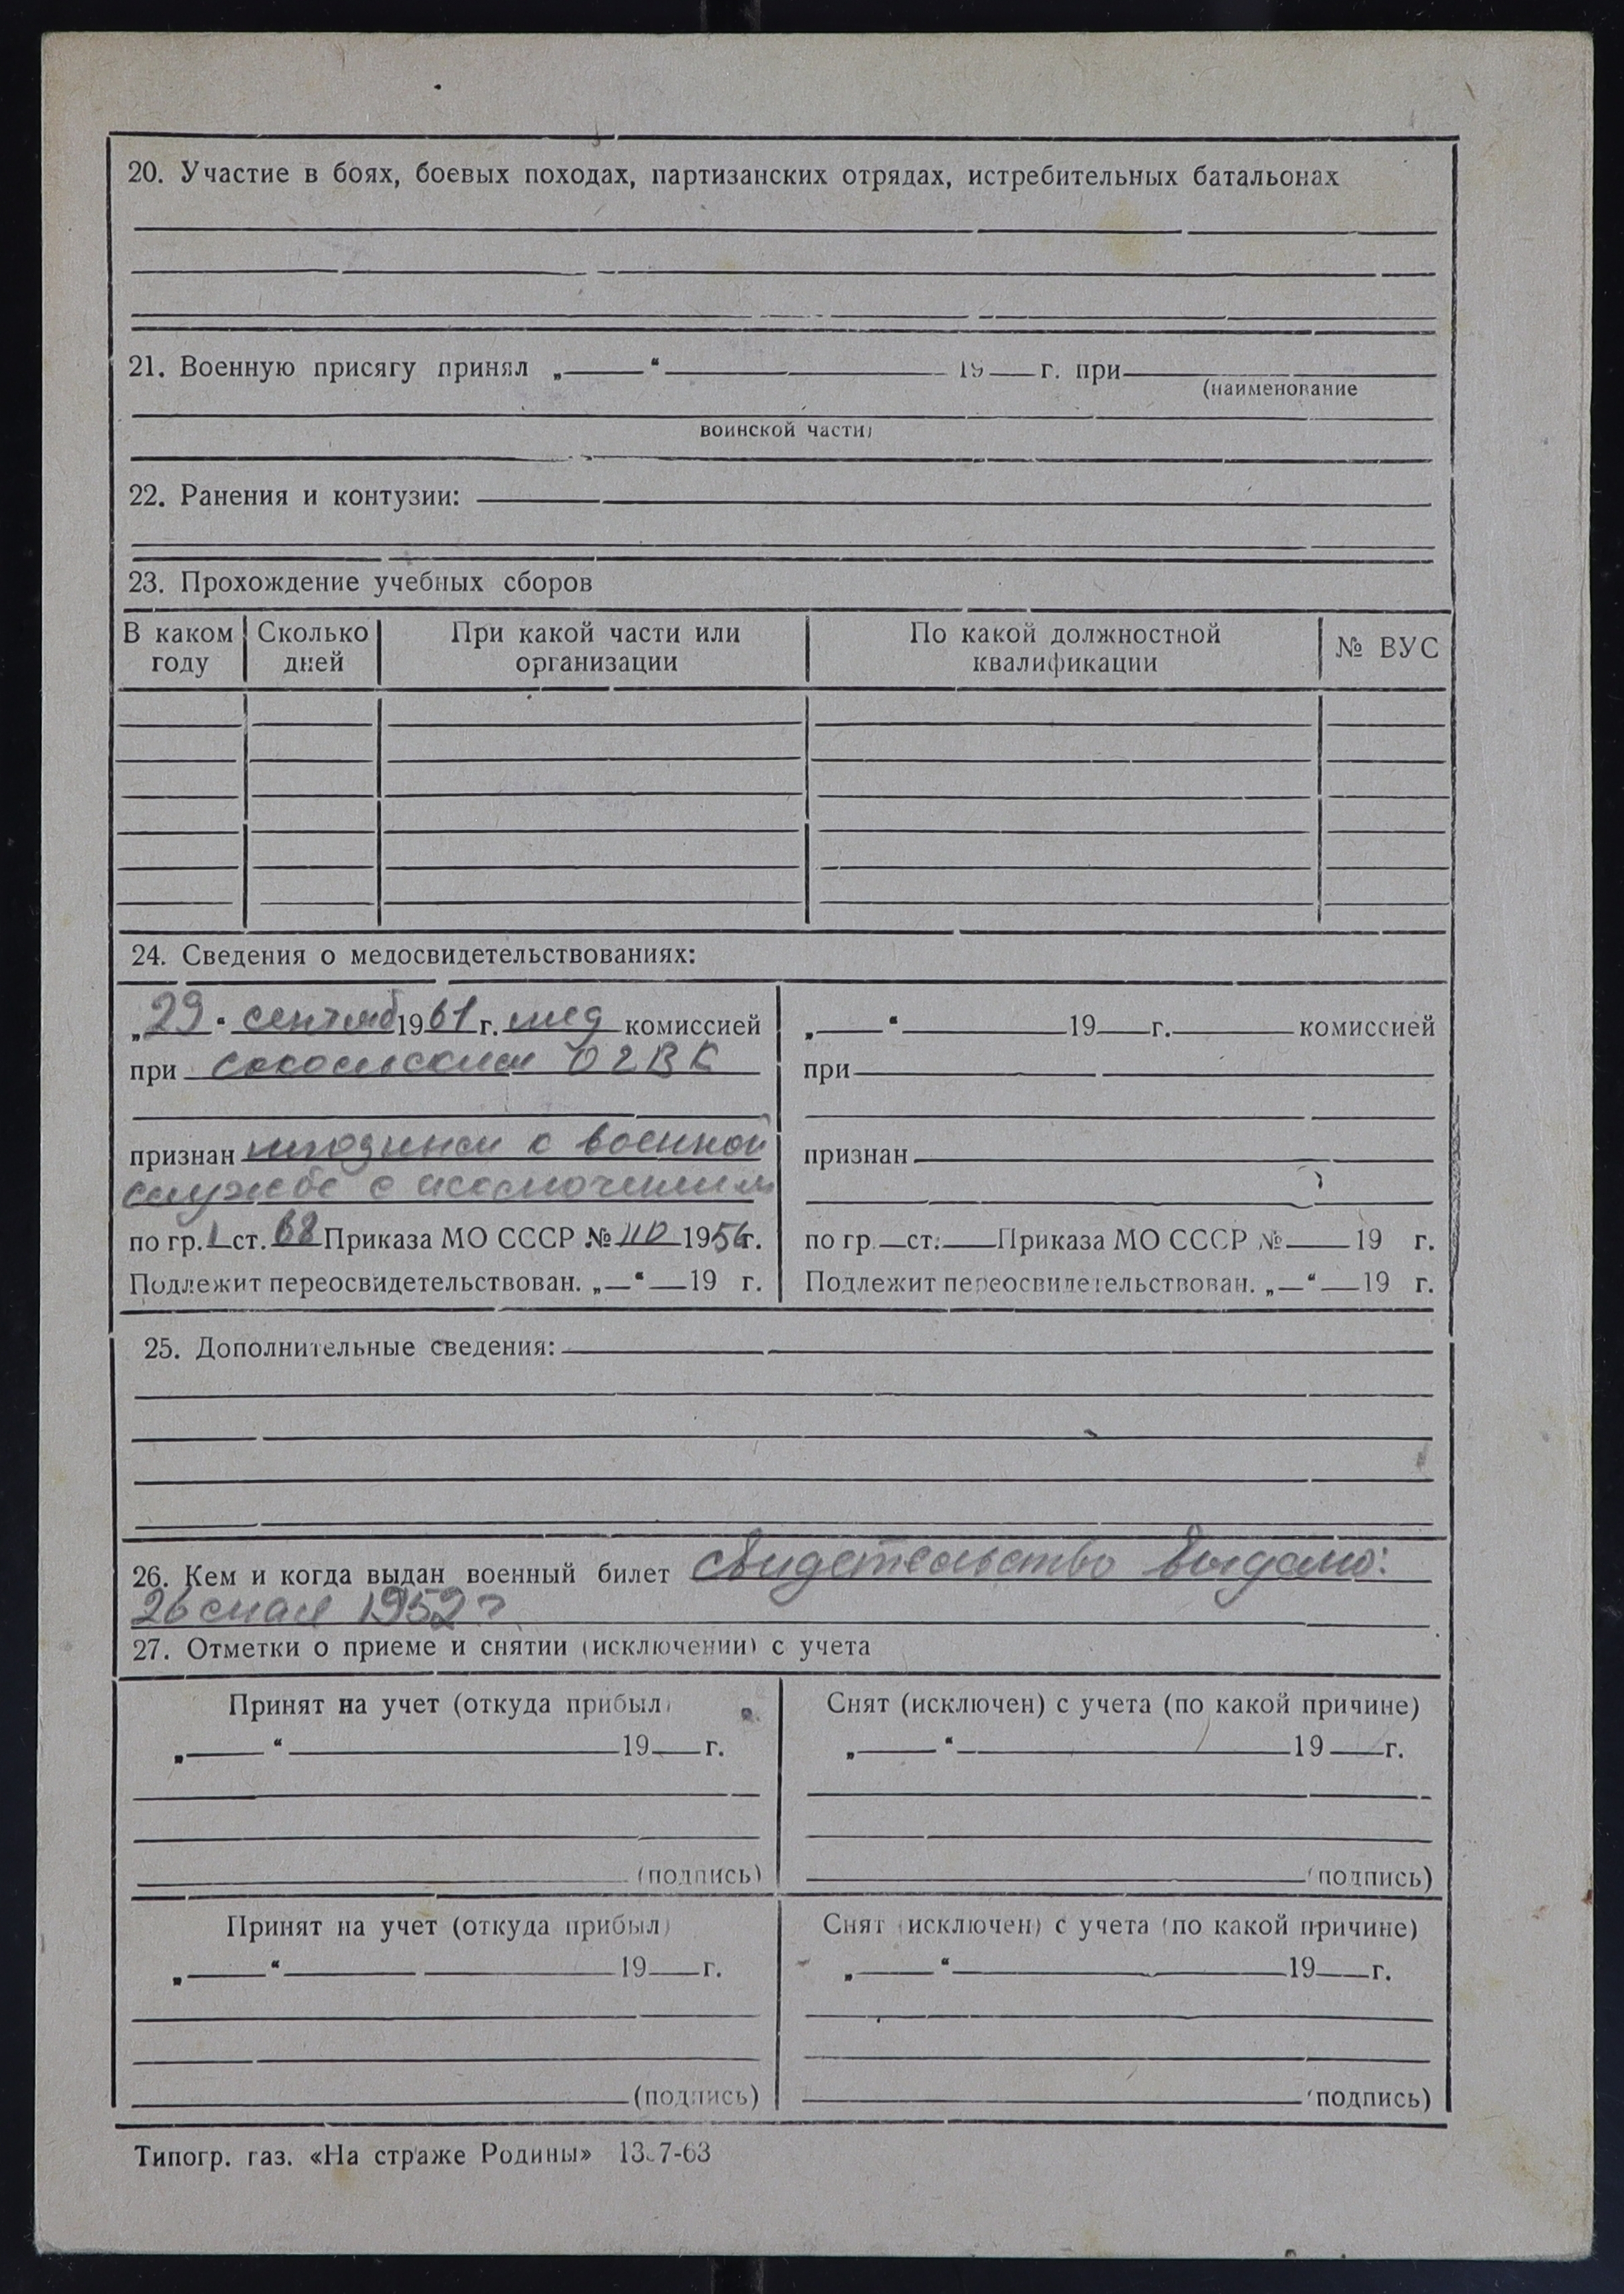 20. Участие в боях, боевых походах, партизанских отрядах, истребительных батальонах
21. Военную присягу принял „ “ 19 г. при
(наименование
воинской части)
22. Ранения и контузии:
23. Прохождение учебных сборов
В каком году Сколько дней При какой части или организации По какой должностной квалификации № ВУС
24. Сведения о медосвидетельствованиях:
„29“ сентяб 1961 г. мед комиссией
при ВК
признан к военной
службе с
по гр. I ст. 68 Приказа МО СССР № 110 1956 г.
Подлежит переосвидетельствован. „ “ 19 г.
„ “ 19 г. комиссией
при
признан
по гр. ст. Приказа МО СССР № 19 г.
Подлежит переосвидетельствован. „ “ 19 г.
25. Дополнительные сведения:
26. Кем и когда выдан военный билет свидетельство выдано:
26 мая 1952 г
27. Отметки о приеме и снятии (исключении) с учета
Принят на учет (откуда прибыл)
„ “ 19 г.
(подпись)
Снят (исключен) с учета (по какой причине)
„ “ 19 г.
(подпись)
Принят на учет (откуда прибыл)
„ “ 19 г.
(подпись)
Снят (исключен) с учета (по какой причине)
„ “ 19 г.
(подпись)
Типогр. газ. «На страже Родины» 13.7-63